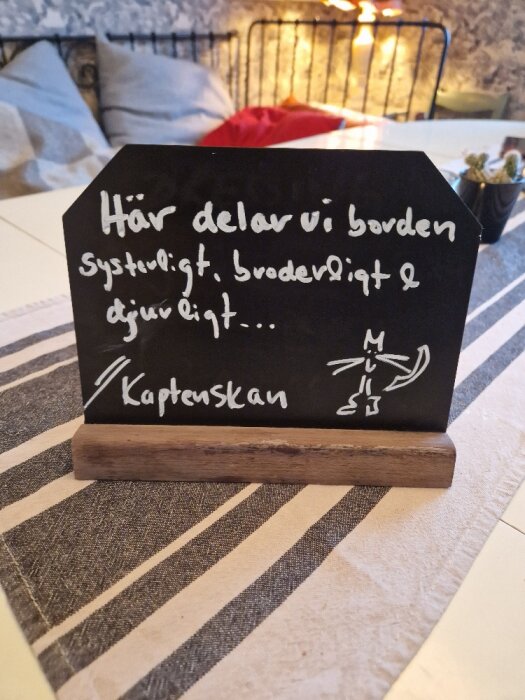 Här delar vi borden
systerligt, broderligt &
djurligt...
// Kaptenskan